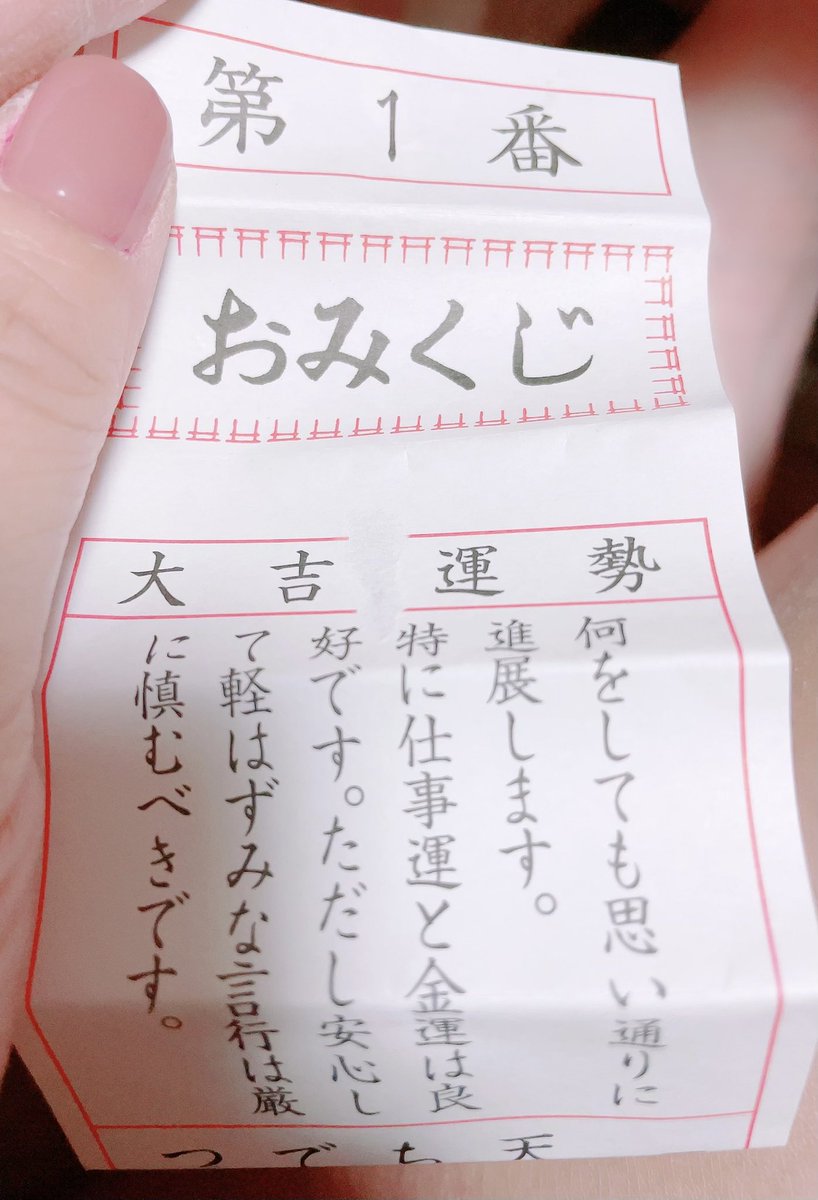 第1番
おみくじ
大吉 運勢
何をしても思い通りに
進展します。
特に仕事運と金運は良
好です。ただし安心し
て軽はずみな言行は厳
に慎むべきです。